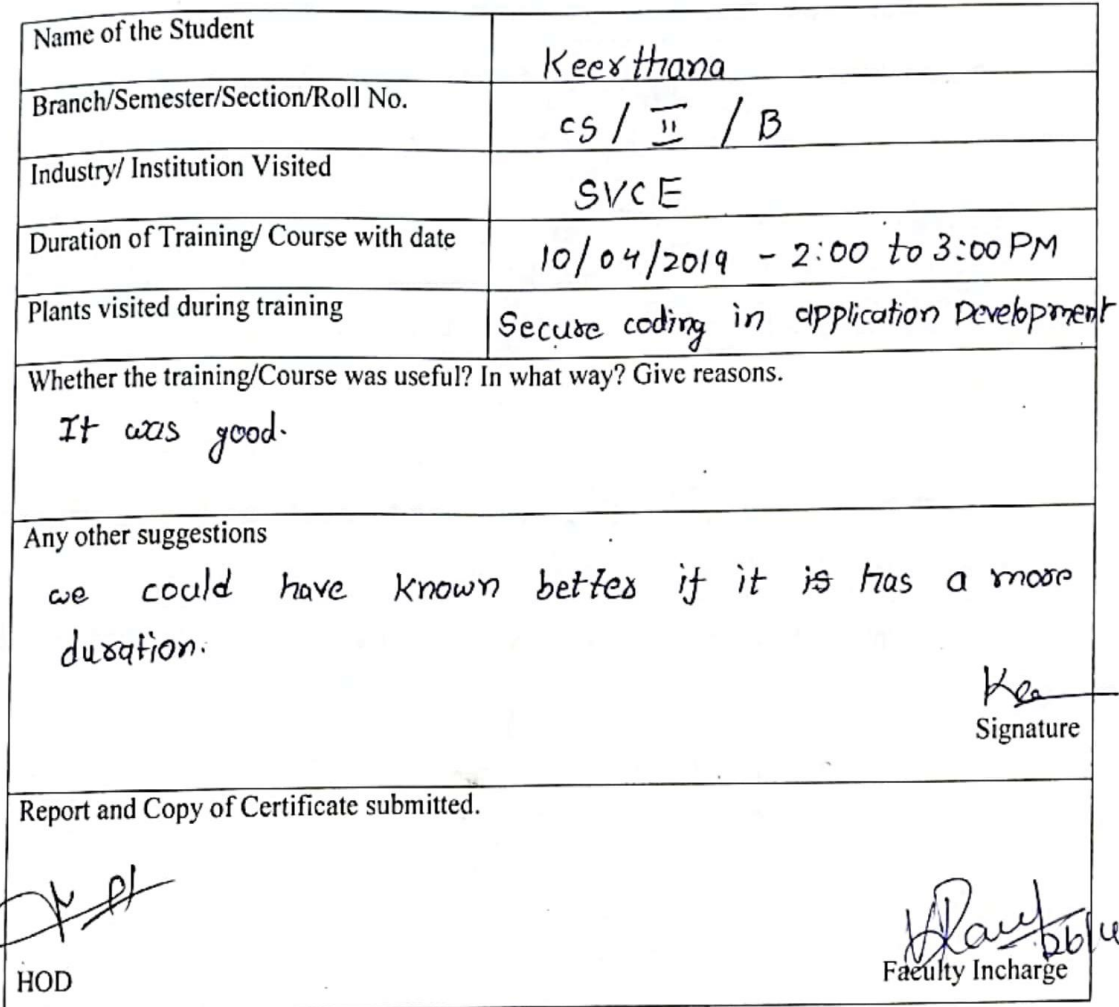 Name of the Student Keerthana
Branch/Semester/Section/Roll No. cs / II / B
Industry/ Institution Visited SVCE
Duration of Training/ Course with date 10/04/2019 - 2:00 to 3:00 PM
Plants visited during training Secure coding in application Development
Whether the training/Course was useful? In what way? Give reasons.
It was good.
Any other suggestions
we could have known better if it is has a more
duration.
Signature
Report and Copy of Certificate submitted.
HOD
Faculty Incharge